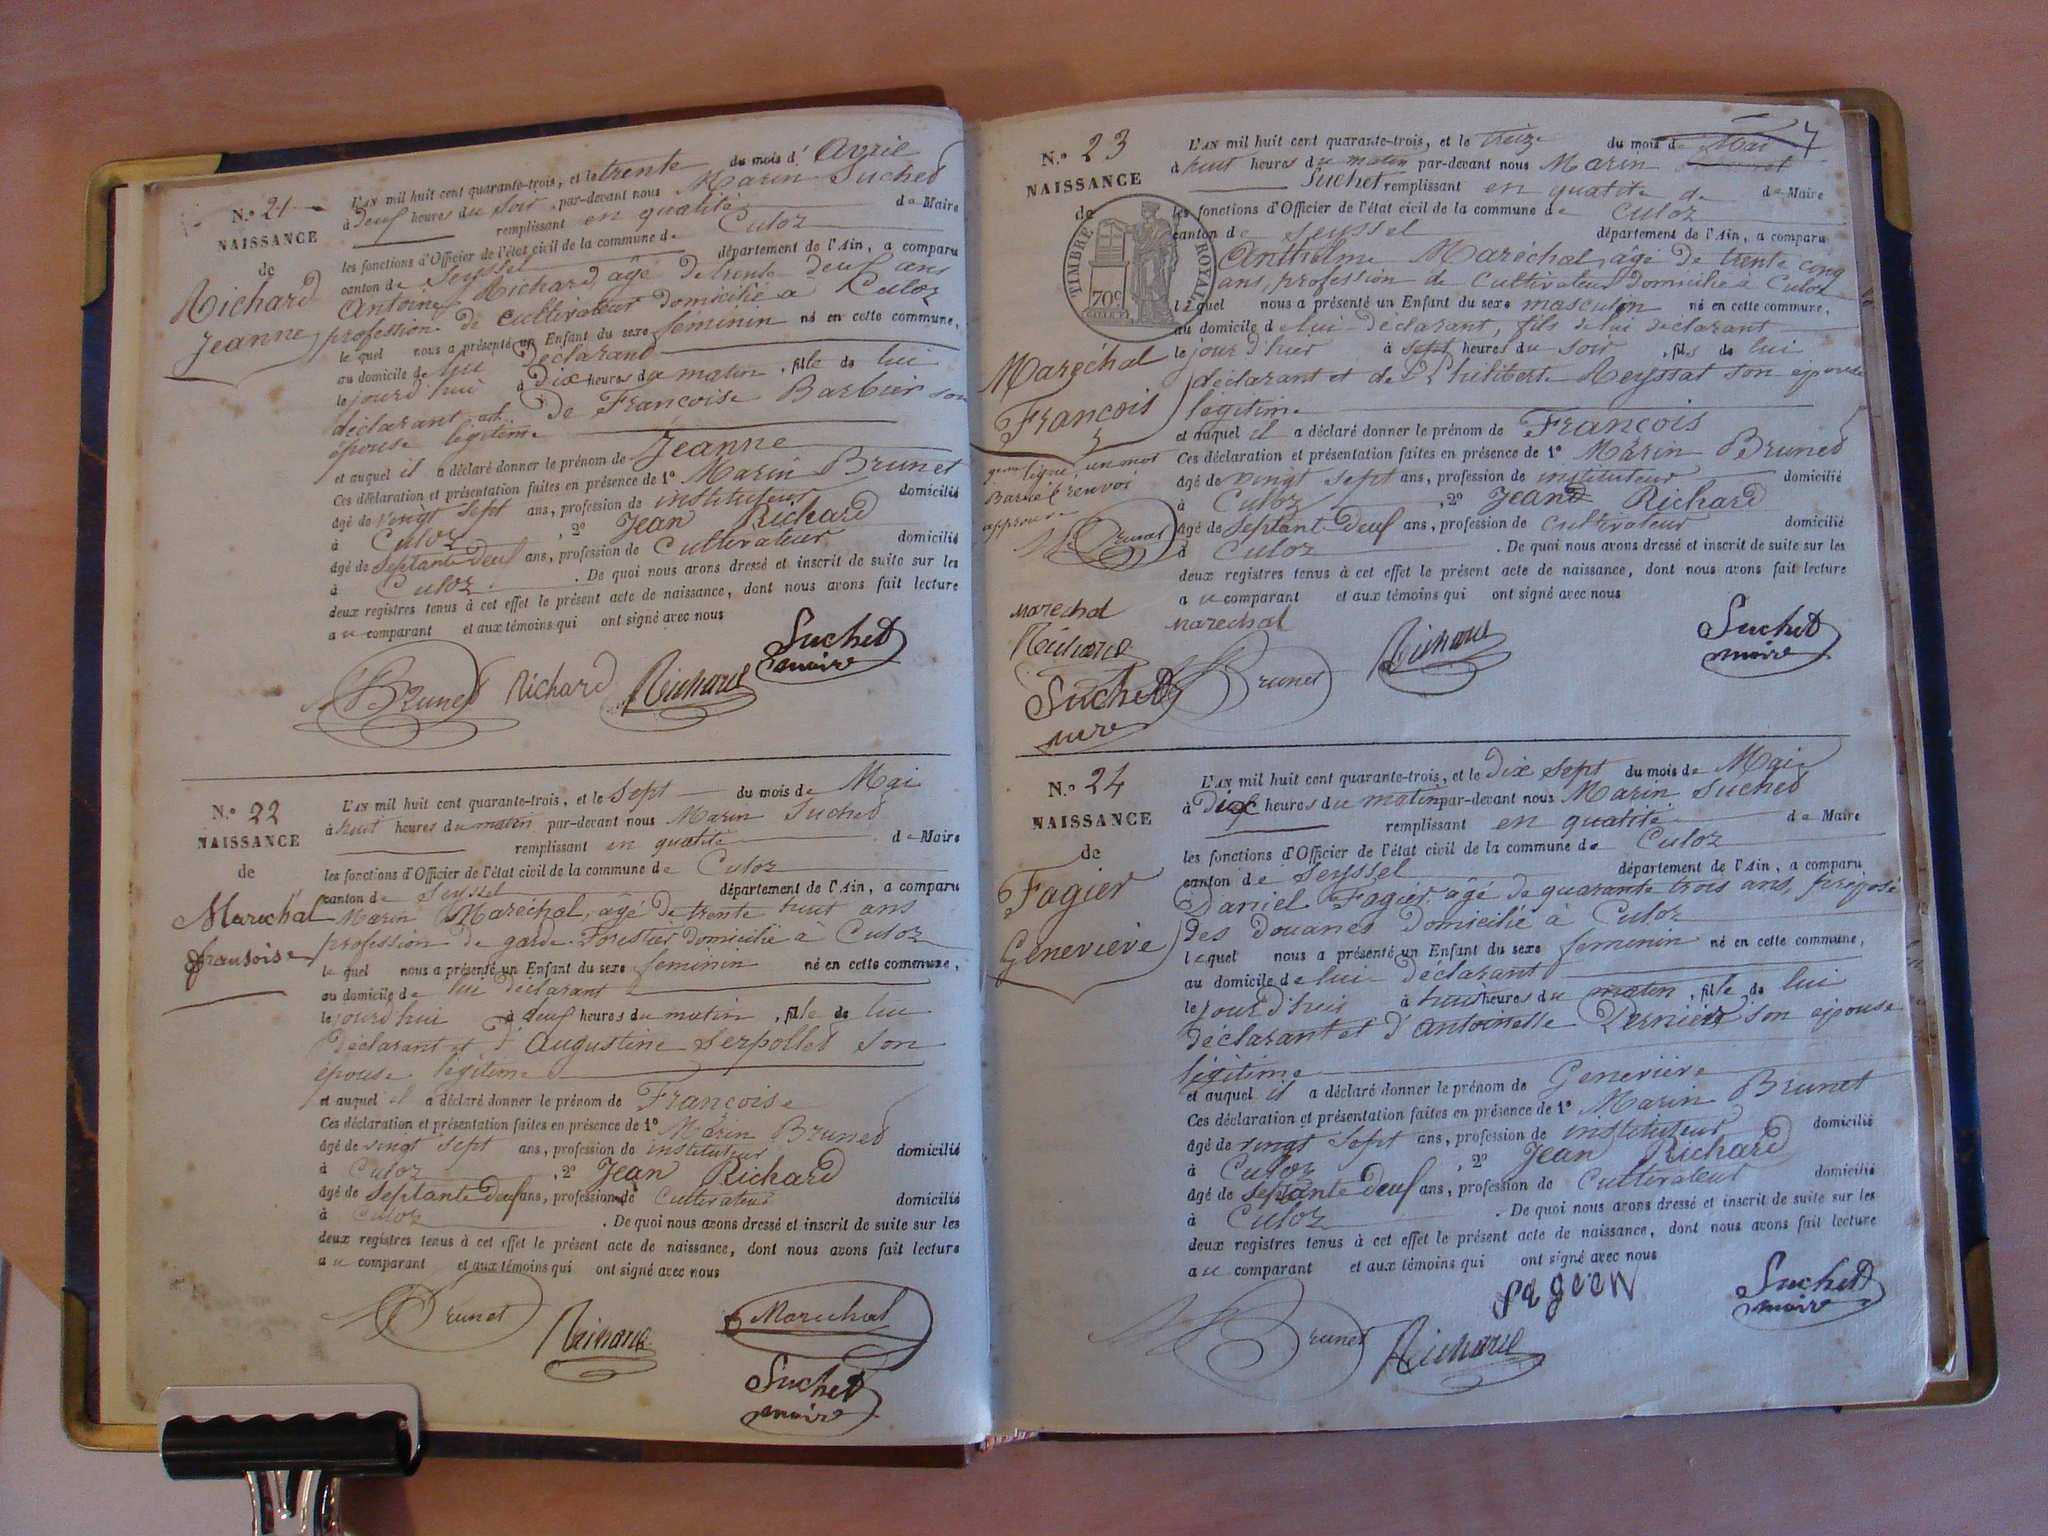 N.o 21
NAISSANCE
de
Richard
Jeanne
L'AN mil huit cent quarante-trois, et le trente du mois d' Avril
à deuf heures du soir par-devant nous Marin Suchet
remplissant en qualité de Maire
les fonctions d'Officier de l'état civil de la commune de Culoz
canton de Seyssel département de l'Ain, a comparu
Antoine Richard, âgé de trente deuf ans
profession de cultivateur domicilié à Culoz
le quel nous a présenté un Enfant du sexe féminin né en cette commune,
au domicile de lui déclarant
le jourd'hui à dix heures du matin, fille de lui
déclarant et de Françoise Barbier son
épouse légitime
et auquel il a déclaré donner le prénom de Jeanne
Ces déclaration et présentation faites en présence de 1o Marin Brunet
âgé de vingt sept ans, profession de instituteur domicilié
à Culoz, 2o Jean Richard
âgé de septante deuf ans, profession de cultivateur domicilié
à Culoz. De quoi nous avons dressé et inscrit de suite sur les
deux registres tenus à cet effet le présent acte de naissance, dont nous avons fait lecture
au comparant et aux témoins qui ont signé avec nous
Brunet Richard Richard Suchet
maire
N.o 22
NAISSANCE
de
Maréchal
fransoise
L'AN mil huit cent quarante-trois, et le sept du mois de Mai
à huit heures du matin par-devant nous Marin Suchet
remplissant en qualité de Maire
les fonctions d'Officier de l'état civil de la commune de Culoz
canton de Seyssel département de l'Ain, a comparu
Marin Maréchal, âgé de trente huit ans
profession de garde-forestier domicilié à Culoz
le quel nous a présenté un Enfant du sexe féminin né en cette commune,
au domicile de lui déclarant
le jourd'hui à deuf heures du matin, fille de lui
déclarant et d' Augustine Serpollet son
épouse légitime
et auquel il a déclaré donner le prénom de Françoise
Ces déclaration et présentation faites en présence de 1o Marin Brunet
âgé de vingt sept ans, profession de instituteur domicilié
à Culoz, 2o Jean Richard
âgé de septante deuf ans, profession de cultivateur domicilié
à Culoz. De quoi nous avons dressé et inscrit de suite sur les
deux registres tenus à cet effet le présent acte de naissance, dont nous avons fait lecture
au comparant et aux témoins qui ont signé avec nous
Brunet Richard Marechal
Suchet
maire
7
N.o 23
NAISSANCE
de
TIMBRE ROYAL
70c
Maréchal
François
ligne, un mot
Barré
approuvé
Brunet
Marechal
Richard
Suchet
L'AN mil huit cent quarante-trois, et le treize du mois de Mai
à huit heures du matin par-devant nous Marin
Suchet remplissant en qualité de de Maire
les fonctions d'Officier de l'état civil de la commune de Culoz
canton de Seyssel département de l'Ain, a comparu
Anthelme Maréchal, âgé de trente cinq
ans, profession de cultivateur domicilié à Culoz
le quel nous a présenté un Enfant du sexe masculin né en cette commune,
au domicile de lui déclarant, fils de lui déclarant
le jour d'hier à sept heures du soir, fils de lui
déclarant et de Philiberte Reyssat son épouse
légitime
et auquel il a déclaré donner le prénom de François
Ces déclaration et présentation faites en présence de 1o Marin Brunet
âgé de vingt sept ans, profession de instituteur domicilié
à Culoz, 2o Jean Richard
âgé de septante deuf ans, profession de cultivateur domicilié
à Culoz. De quoi nous avons dressé et inscrit de suite sur les
deux registres tenus à cet effet le présent acte de naissance, dont nous avons fait lecture
au comparant et aux témoins qui ont signé avec nous
Marechal Brunet Richard Suchet
maire
N.o 24
NAISSANCE
de
Fagier
Geneviève
L'AN mil huit cent quarante-trois, et le dix sept du mois de Mai
à dix heures du matin par-devant nous Marin Suchet
remplissant en qualité de Maire
les fonctions d'Officier de l'état civil de la commune de Culoz
canton de Seyssel département de l'Ain, a comparu
Daniel Fagier, âgé de quarante trois ans, préposé
des douanes domicilié à Culoz
le quel nous a présenté un Enfant du sexe féminin né en cette commune,
au domicile de lui déclarant
le jourd'hui à huit heures du matin, fille de lui
déclarant et d' Antoinette Dernier son épouse
légitime
et auquel il a déclaré donner le prénom de Geneviève
Ces déclaration et présentation faites en présence de 1o Marin Brunet
âgé de vingt sept ans, profession de instituteur domicilié
à Culoz, 2o Jean Richard
âgé de septante deuf ans, profession de cultivateur domicilié
à Culoz. De quoi nous avons dressé et inscrit de suite sur les
deux registres tenus à cet effet le présent acte de naissance, dont nous avons fait lecture
au comparant et aux témoins qui ont signé avec nous
Brunet Richard Suchet
maire